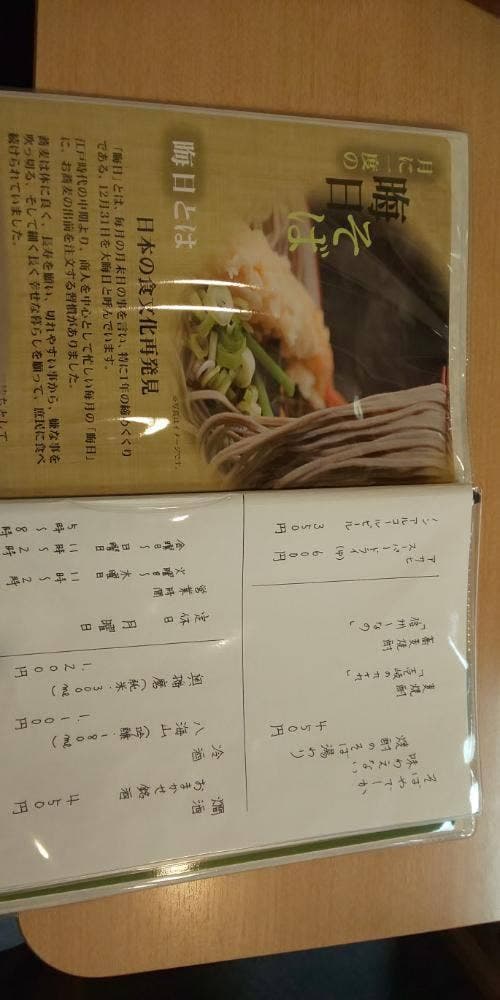 月に一度の
晦日
そば
※写真はイメージです。
晦日とは
日本の食文化再発見
「晦日」とは、毎月の月末日の事を言い、特に1年の締めくくり
である、12月31日を大晦日と呼んでいます。
江戸時代の中期より、商人を中心として忙しい毎月の「晦日」
に、お蕎麦の出前を注文する習慣がありました。
蕎麦は体に良く、長寿を願い、切れやすい事から、嫌な事を
吹っ切る、そして細く長く幸せな暮らしを願って、庶民に食べ
続けられていました。
そばやでしか
味わえない
焼酎のそば湯わり
450円
麦焼酎
蕎麦焼酎
アサヒ
スーパードライ(中)
600円
ノンアルコールビール
350円
燗酒
おまかせ銘酒
450円
冷酒
八海山
1.100円
奥播磨(純米.300ml)
1.200円
定休日
月曜日
営業時間
火曜日~木曜日
11時~2時
金曜日~日曜日
11時~2時
5時~8時